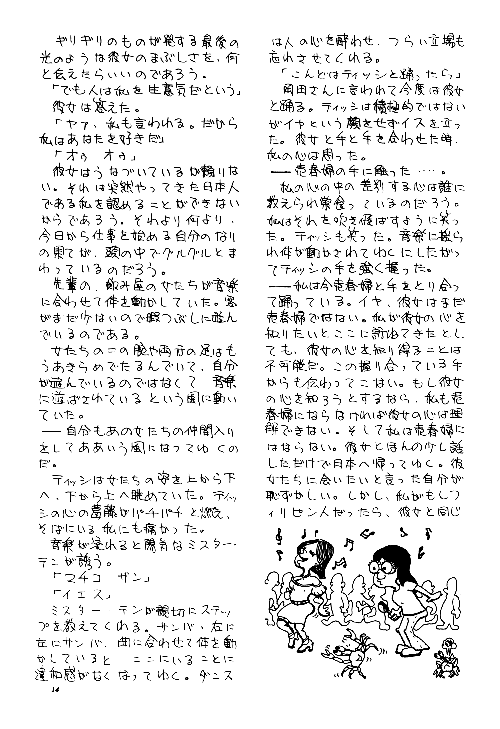 ギリギリのものが発する最後の
光のような彼女のまぶしさを、何
と伝えたらいいのであろう。
「でも人は私を生意気だという」
彼女は答えた。
「ヤァ、私も言われる。だから
私はあなたを好きだ」
「オゥ オゥ」
彼女はうなづいているが頼りな
い。それは突然やってきた日本人
である私を認めることができない
からであろう。それより何より、
今日から仕事を始める自分のなり
の果てが、頭の中でグルグルとま
わっているのだろう。
先輩の、飲み屋の女たちが音楽
に合わせて体を動かしていた。客
がまだ少ないので暇つぶしに遊ん
でいるのである。
女たちの二の腕や両方の足はも
うあきらめでたるんでいて、自分
が遊んでいるのではなくて 音楽
に遊ばされているという風に動い
ていた。
――自分もあの女たちの仲間入り
をしてああいう風になってゆくの
だ。
ティッシは女たちの姿を上から下
へ、下から上へ眺めていた。ティッ
シの心の葛藤がバチバチと燃え、
そばにいる私にも痛かった。
音楽が流れると陽気なミスター・
テンが誘う。
「マチコ サン」
「イエス」
ミスター テンが親切にステッ
プを教えてくれる。サンバ、右に
左にサンバ、曲に合わせて体を動
かしていると ここにいることに
違和感がなくなってゆく。ダンス
14
は人の心を酔わせ、つらい立場も
忘れさせてくれる。
「こんどはティッシと踊ったら」
岡田さんに言われて今度は彼女
と踊る。ティッシは積極的ではない
がイヤという顔をせずイスを立っ
た。彼女と手と手を合わせた時、
私の心は思った。
――売春婦の手に触った……。
私の心の中の差別する心は誰に
教えられ巣食っているのだろう。
私はそれを吹き飛ばすように笑っ
た。ティッシも笑った。音楽に操ら
れ体が動かされてゆくにしたがっ
てティッシの手を強く握った。
――私は今売春婦と手をとり合っ
て踊っている。イヤ、彼女はまだ
売春婦ではない。私が彼女の心を
知りたいとここに訪ねてきたとし
ても、彼女の心を知り得ることは
不可能だ。この握り合っている手
からも伝わってこない。もし彼女
の心を知ろうとするなら、私も売
春婦にならなければ彼女の心は理
解できない。そして私は売春婦に
はならない。彼女とほんの少し話
しただけで日本へ帰ってゆく。彼
女たちに会いたいと言った自分が
恥ずかしい。しかし、私がもしフ
ィリピン人だったら、彼女と同じ